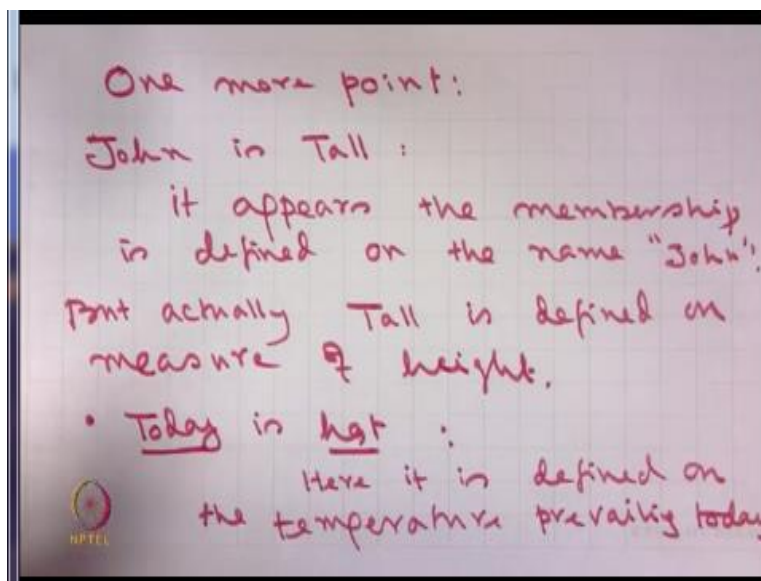 One more point:
John is Tall :
it appears the membership
is defined on the name "John".
But actually Tall is defined on
measure of height.
• Today is hot :
Here it is defined on
the temperature prevailing today
NPTEL